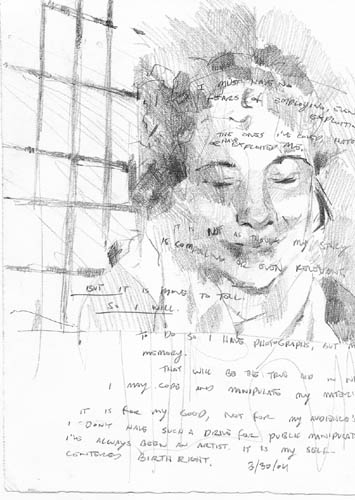 I MUST HAVE NO
FEARS OF EMPLOYING, EVEN
EXPLOITI
THE ONES I'VE LOVED
EXPLOITED ME.
IT IS NOT AS THOUGH MY STORY
IS COMPELLING OR EVEN RELEVANT,
BUT IT IS MINE TO TELL.
SO I WILL.
TO DO SO I HAVE PHOTOGRAPHS, BUT
MEMORY.
THAT WILL BE THE TRUE AID IN
I MAY COPE AND MANIPULATE MY MATERI
IT IS FOR MY GOOD, NOT FOR MY AUDIENCE'S
I DON'T HAVE SUCH A DRIVE FOR PUBLIC MANIPULAT
I'VE ALWAYS BEEN AN ARTIST. IT IS MY SELF-
CENTERED BIRTH RIGHT.
3/30/04